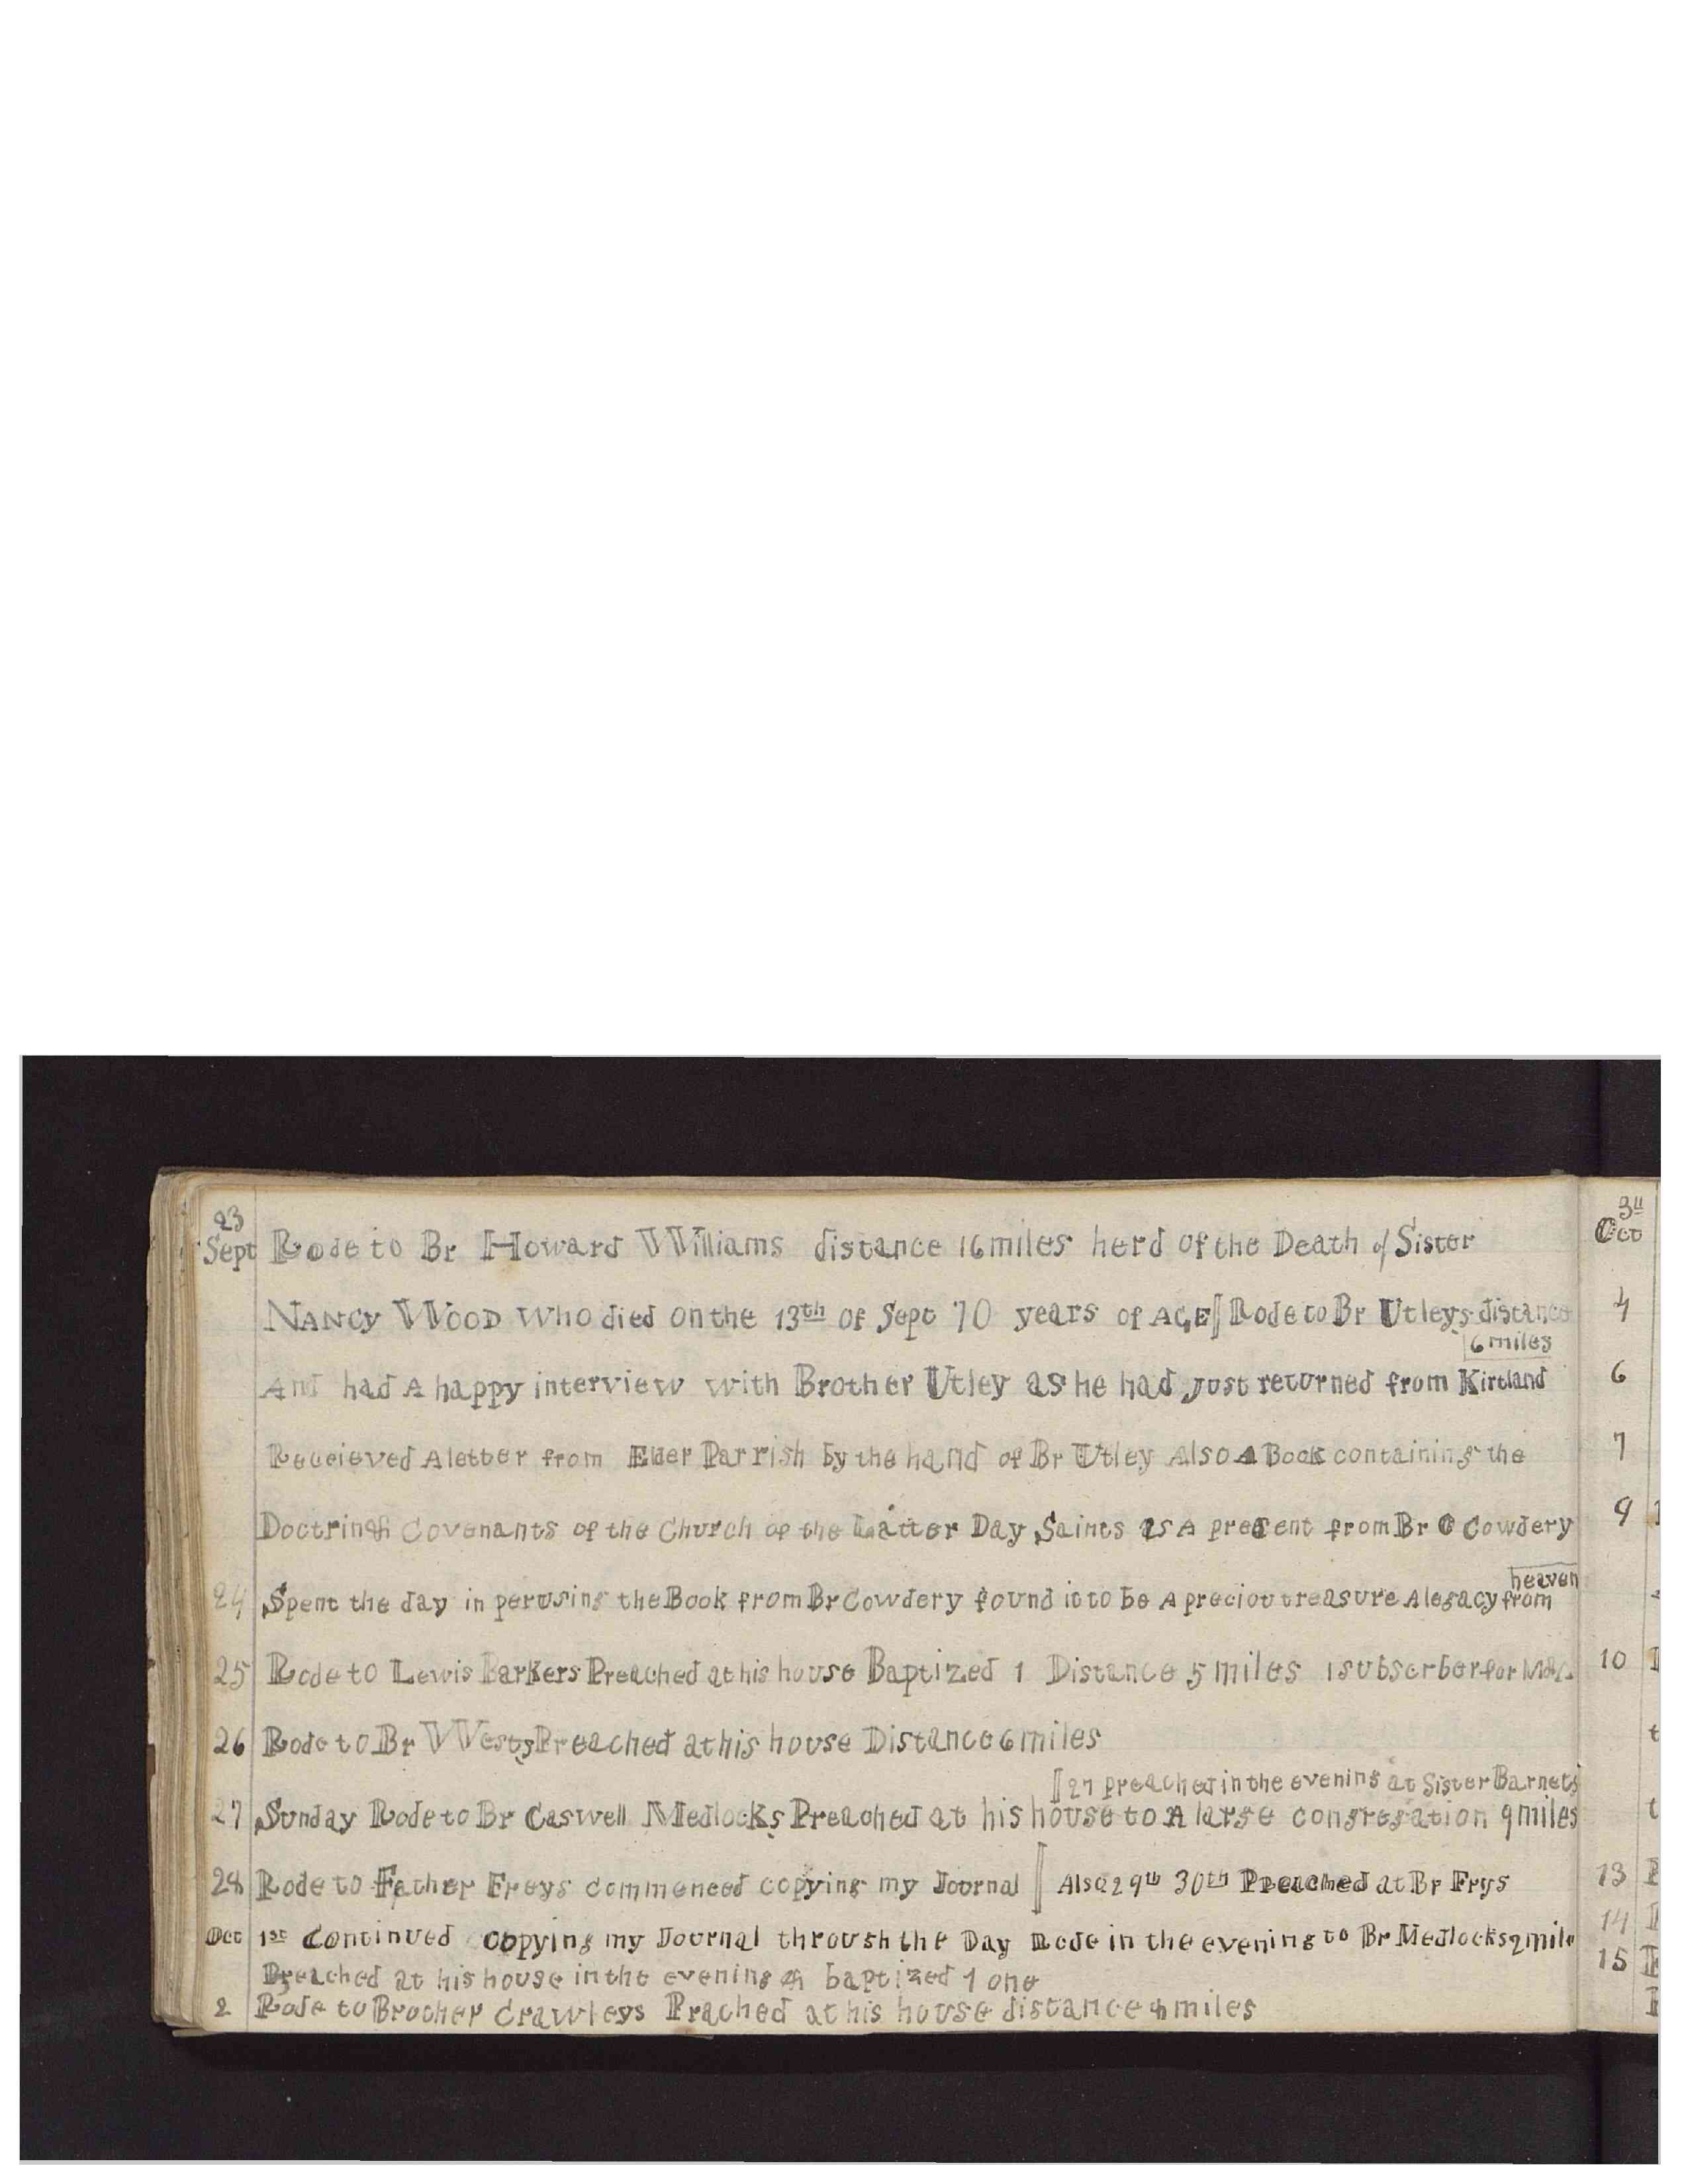 23
Sept Rode to Br Howard Williams distance 16 miles herd of the Death of Sister
NANCY WOOD Who died on the 13th of Sept 70 years of AGE || Rode to Br Utleys distance
6 miles
And had A happy interview with Brother Utley as he had just returned from Kirtland
Receieved A letter from Elder Parrish by the hand of Br Utley Also A Book containing the
Doctrin & Covenants of the Church of the Latter Day Saints as A present from Br O Cowdery
heaven
24 Spent the day in perusing the Book from Br Cowdery found it to be A preciou treasure A legacy from
25 Rode to Lewis Barkers Preached at his house Baptized 1 Distance 5 miles 1 subscrber for M&A
26 Rode to Br Wests Preached at his house Distance 6 miles
|| 27 preached in the evening at Sister Barnets
27 Sunday Rode to Br Caswell Medlocks Preached at his house to A large congregation 9 miles
28 Rode to Father Freys commenced copying my Journal || Also 29th 30th Preached at Br Frys
Oct 1st Continued copying my Journal through the Day Rode in the evening to Br Medlocks 2 mile
Preached at his house in the evening & baptized 1 one
2 Rode to Brother Crawleys Prached at his house distance 4 miles
3d
Oct
4
6
7
9
10
13
14
15